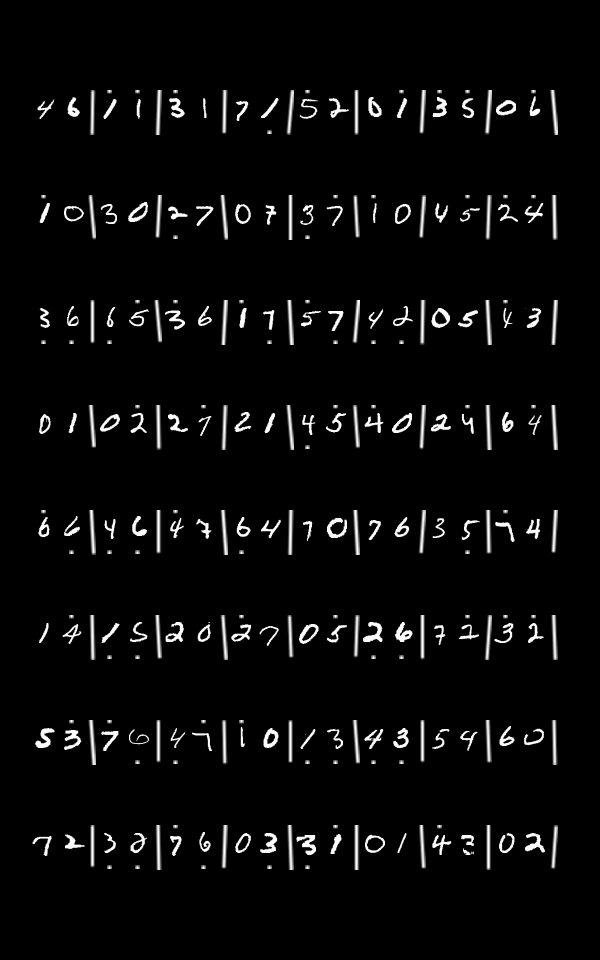 4 6 | 1 1 | 3 1 | 7 1 | 5 2 | 0 1 | 3 5 | 0 6 |
1 0 | 3 0 | 2 7 | 0 7 | 3 7 | 1 0 | 4 5 | 2 4 |
3 6 | 6 5 | 3 6 | 1 7 | 5 7 | 4 2 | 0 5 | 4 3 |
0 1 | 0 2 | 2 7 | 2 1 | 4 5 | 4 0 | 2 4 | 6 4 |
6 6 | 4 6 | 4 7 | 6 4 | 7 0 | 7 6 | 3 5 | 7 4 |
1 4 | 1 5 | 2 0 | 2 7 | 0 5 | 2 6 | 7 2 | 3 2 |
5 3 | 7 6 | 4 7 | 1 0 | 1 3 | 4 3 | 5 4 | 6 0 |
7 2 | 3 2 | 7 6 | 0 3 | 3 1 | 0 1 | 4 3 | 0 2 |